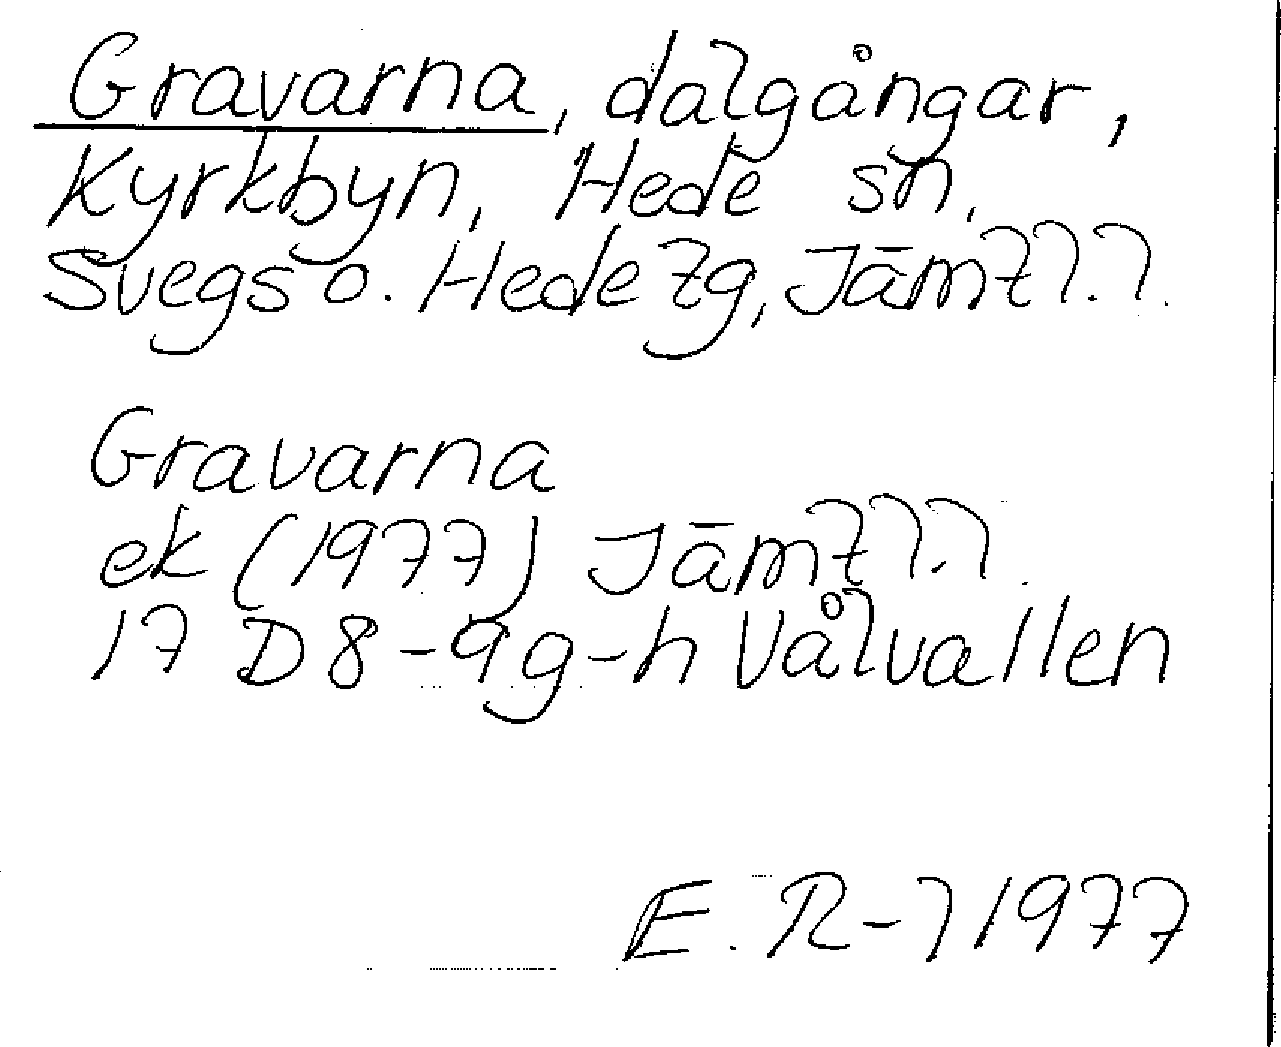 Gravarna, dalgångar,
Kyrkbyn, Hede sn,
Svegs o. Hede tg, Jämtl.l.
Gravarna
ek (1977) Jämtl.l.
17 D 8-9g-h Vålvallen
E. R-l 1977